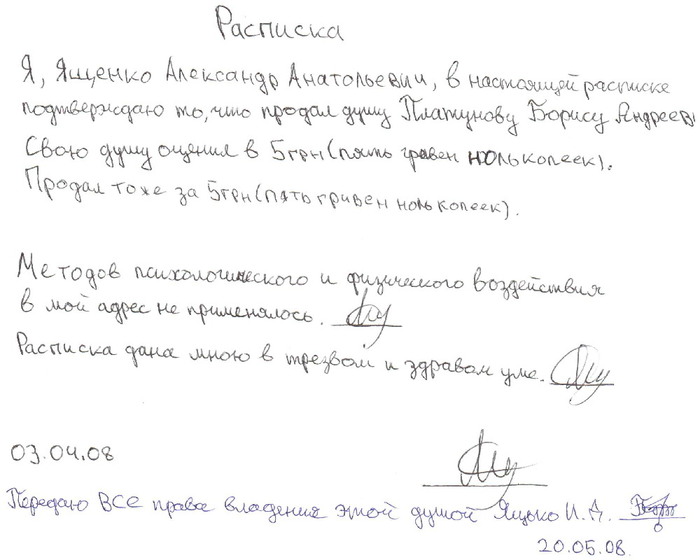 Расписка
Я, Ященко Александр Анатольевич, в настоящей расписке
подтверждаю то, что продал душу Платунову Борису Андреев
Свою душу оценил в 5грн(пять гривен ноль копеек).
Продал тоже за 5грн(пять гривен ноль копеек).
Методов психологического и физического воздействия
в мой адрес не применялось.
Расписка дана мною в трезвом и здравом уме.
03.04.08
Передаю ВСЕ права владения этой душой Яцько И. А.
20.05.08